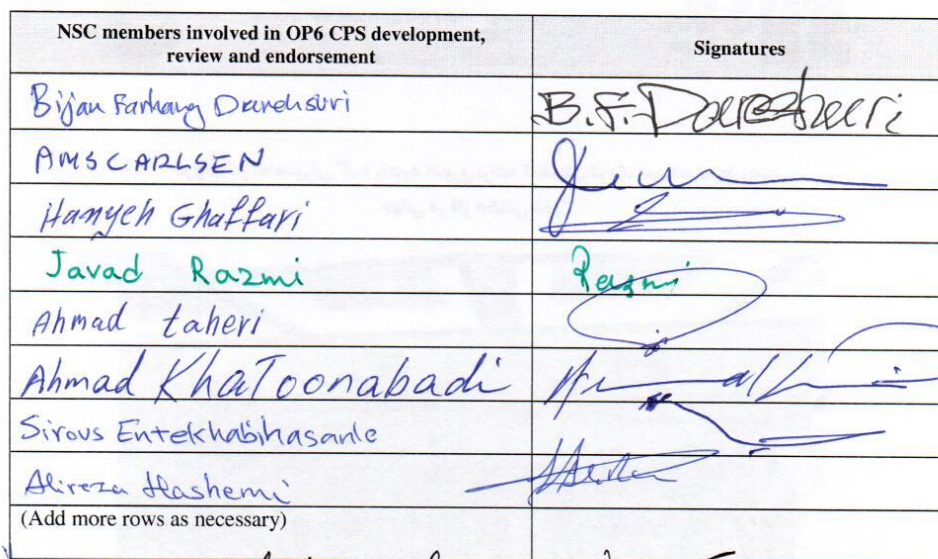 NSC members involved in OP6 CPS development,
review and endorsement
Signatures
Bijan Farhang Darehsuri
B.F. Darehshuri
AMSCARLSEN
Hanyeh Ghaffari
Javad Razmi
Razmi
Ahmad taheri
Ahmad KhaToonabadi
Sirous Entekhabihasanle
Alireza Hashemi
(Add more rows as necessary)